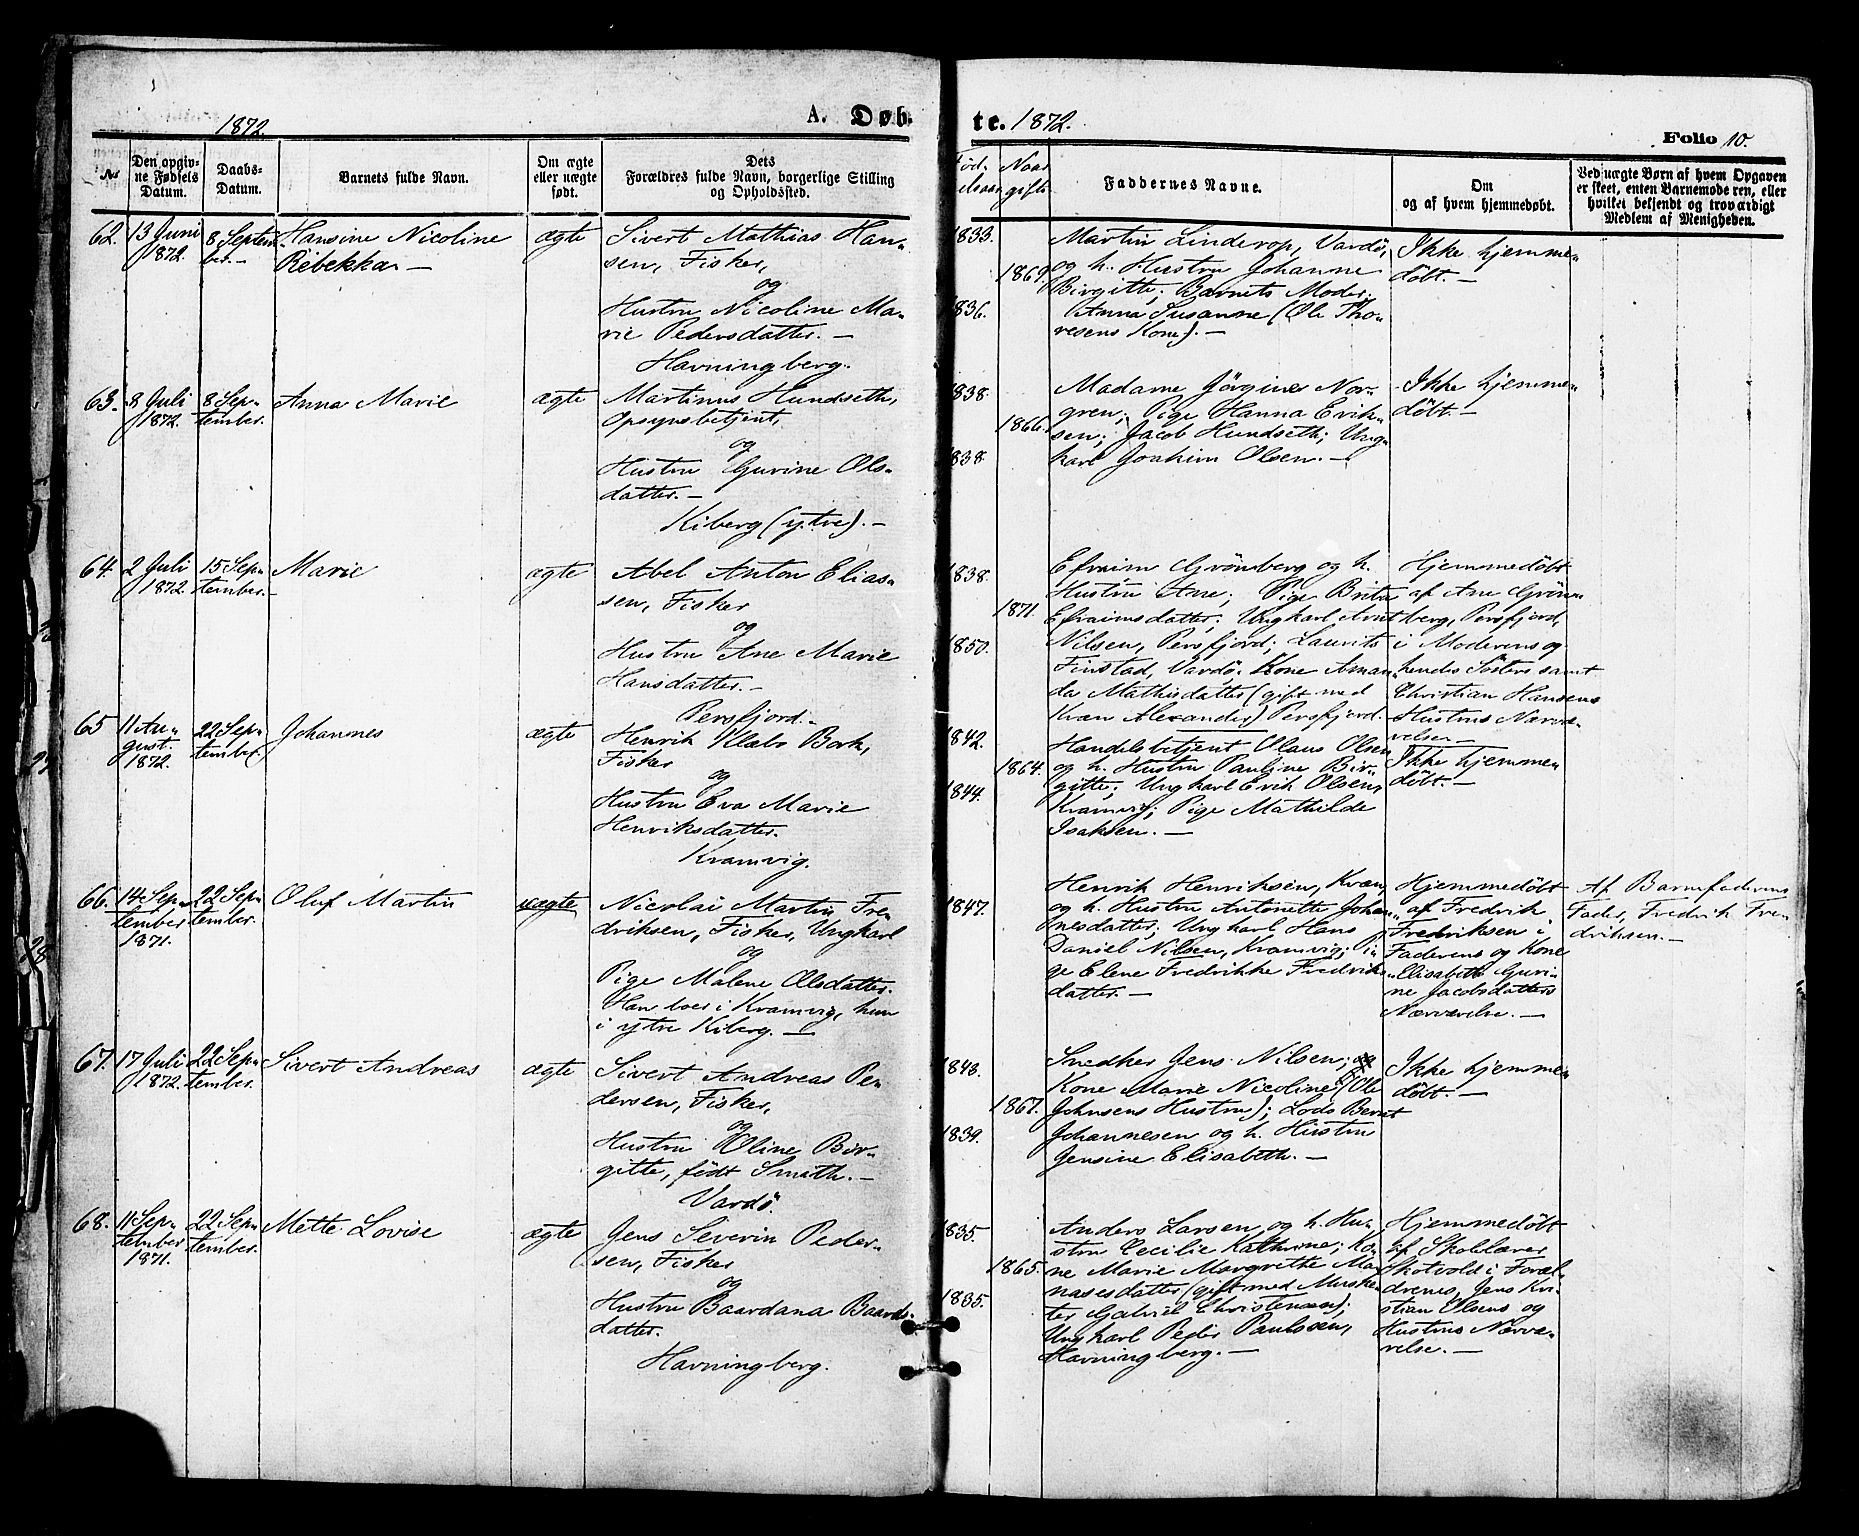 1872.
A. Døb-
te. 1872.
Folio 10.
No
Den opgiv-
ne Fødsels
Datum.
Daabs-
Datum.
Barnets fulde Navn.
Om ægte
eller uægte
født.
Dets
Forældres fulde Navn, borgerlige Stilling
og Opholdssted.
Fød-
elsaar
Naar
gifte
Faddernes Navne.
Om
og af hvem hjemmedøbt.
Ved uægte Børn af hvem Opgaven
er skeet, enten Barnemoderen, eller
hvilket bekjendt og troværdigt
Medlem af Menigheden.
62.
13 Juni
1872.
8 Septem
ber.-
Hansine Nicoline
Rebekka. -
ægte
Sivert Mathias Han-
sen, Fisker,
og
Hustru Nicoline Ma-
rie Pedersdatter. -
Havningberg.
1833.
1869.
1836.
Martin Linderop, Vardö,
og h. Hustru Johanne
Birgitte; Barnets Moder;
Anna Susanne (Ole Tho-
resens Kone). -
Ikke hjemme-
döbt. -
63.
8 Juli
1872.
8 Sep-
tember.
Anna Marie
ægte
Martinus Hundseth,
Opsynsbetjent,
og
Hustru Gurine Ols-
datter. -
Kiberg (ytre). -
1838.
1866.
1838.
Madame Jörgine Nor-
gren; Pige Hanna Erik-
sen; Jacob Hundseth; Ung-
karl Joakim Olsen. -
Ikke hjemme-
döbt. -
64.
2 Juli
1872.
15 Sep-
tember. -
Marie
ægte
Abel Anton Elias-
sen, Fisker
og
Hustru Ane Marie
Hansdatter. -
Persfjord. -
1838.
1871.
1850.
Efraim Grönberg og h.
Hustru Ane; Pige Brita
Efraimsdatter; Ungkarl Arnt
Nilsen, Persfjord; Laurits
Finstad, Vardö. Kone Aman-
da Mathisdatter (gift med
Kvæn Alexander) Persfjord.
Hjemmedöbt
af Ane Grön-
berg, Persfjord,
i Moderens og
hendes Sösters samt
Christian Hansens
Hustrus Nærvæ-
relse. -
65
11 Au-
gust.
1872.
22 Sep-
tember.
Johannes
ægte
Henrik Klæbo Bork,
Fisker
og
Hustru Eva Marie
Henriksdatter.
Kramvig.
1842.
1864.
1844.
Handelsbetjent Olaus Olsen
og h. Hustru Pauline Bir-
gitte; Ungkarl Erik Olsen,
Kramvig; Pige Mathilde
Isaksen. -
Ikke hjemme-
döbt. -
66.
14 Sep-
tember
1871.
22 Sep-
tember.
Oluf Martin
uægte
Nicolai Martin Fre-
driksen, Fisker, Ungkarl
og
Pige Malene Olsdatter.
Han boer i Kramvig, hun
i ytre Kiberg. -
1847.
Henrik Henriksen, Kvæn,
og h. Hustru Antonette Johan-
nesdatter; Ungkarl Hans
Daniel Nilsen, Kramvig; Pi-
ge Elene Fredrikke Fredriks-
datter. -
Hjemmedöbt
af Fredrik
Fredriksen i
Faderens og Kone
Elisabeth Guri-
ne Jacobsdatters
Nærværelse. -
Af Barnefaderens
Fader, Fredrik Fre-
driksen. -
67.
17 Juli
1872.
22 Sep-
tember.
Sivert Andreas
ægte
Sivert Andreas Pe-
dersen, Fisker,
og
Hustru Oline Bir-
gitte, födt Smith. -
Vardö.
1843.
1867.
1839.
Snedker Jens Nilsen; og
Kone Marie Nicoline (Ole
Johnsens Hustru); Lods Bernt
Johannesen og h. Hustru
Jensine Elisabeth. -
Ikke hjemme-
döbt. -
68.
11 Sep-
tember
1871.
22 Sep-
tember.
Mette Lovise
ægte
Jens Severin Peder-
sen, Fisker
og
Hustru Baardana Baards-
datter.
Havningberg.
1835.
1865.
1835.
Anders Larsen og h. Hu-
stru Cecilie Kathrine; Ko-
ne Marie Margrethe Ma-
nasesdatter (gift med
ter Gabriel Christensen);
Ungkarl Peder Paulssen,
Havningberg. -
Hjemmedöbt
af Skolelærer
Skotvold i Foræl-
drenes, Jens Kri-
stian Olsens og
Hustrus Nærvæ-
relse. -